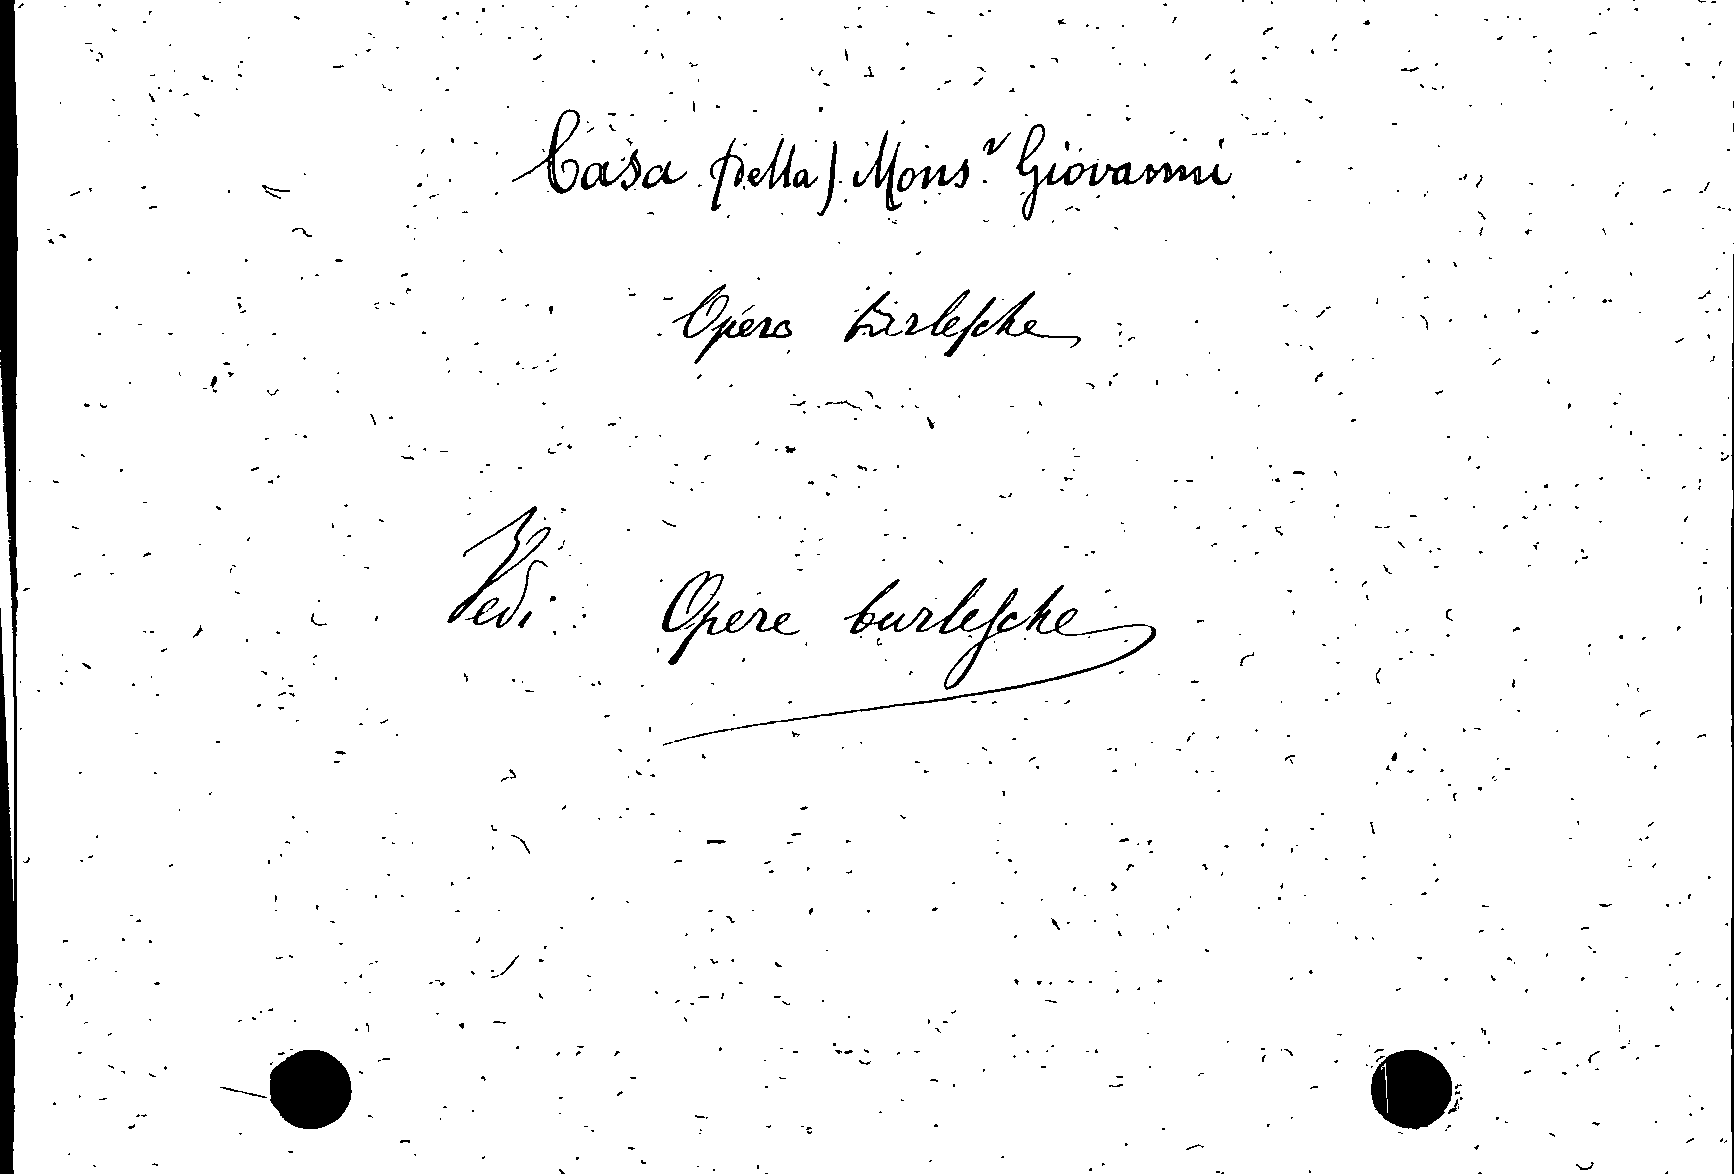 Casa (Della) Mons.r Giovanni
Opere burlesche
Vedi Opere burlesche